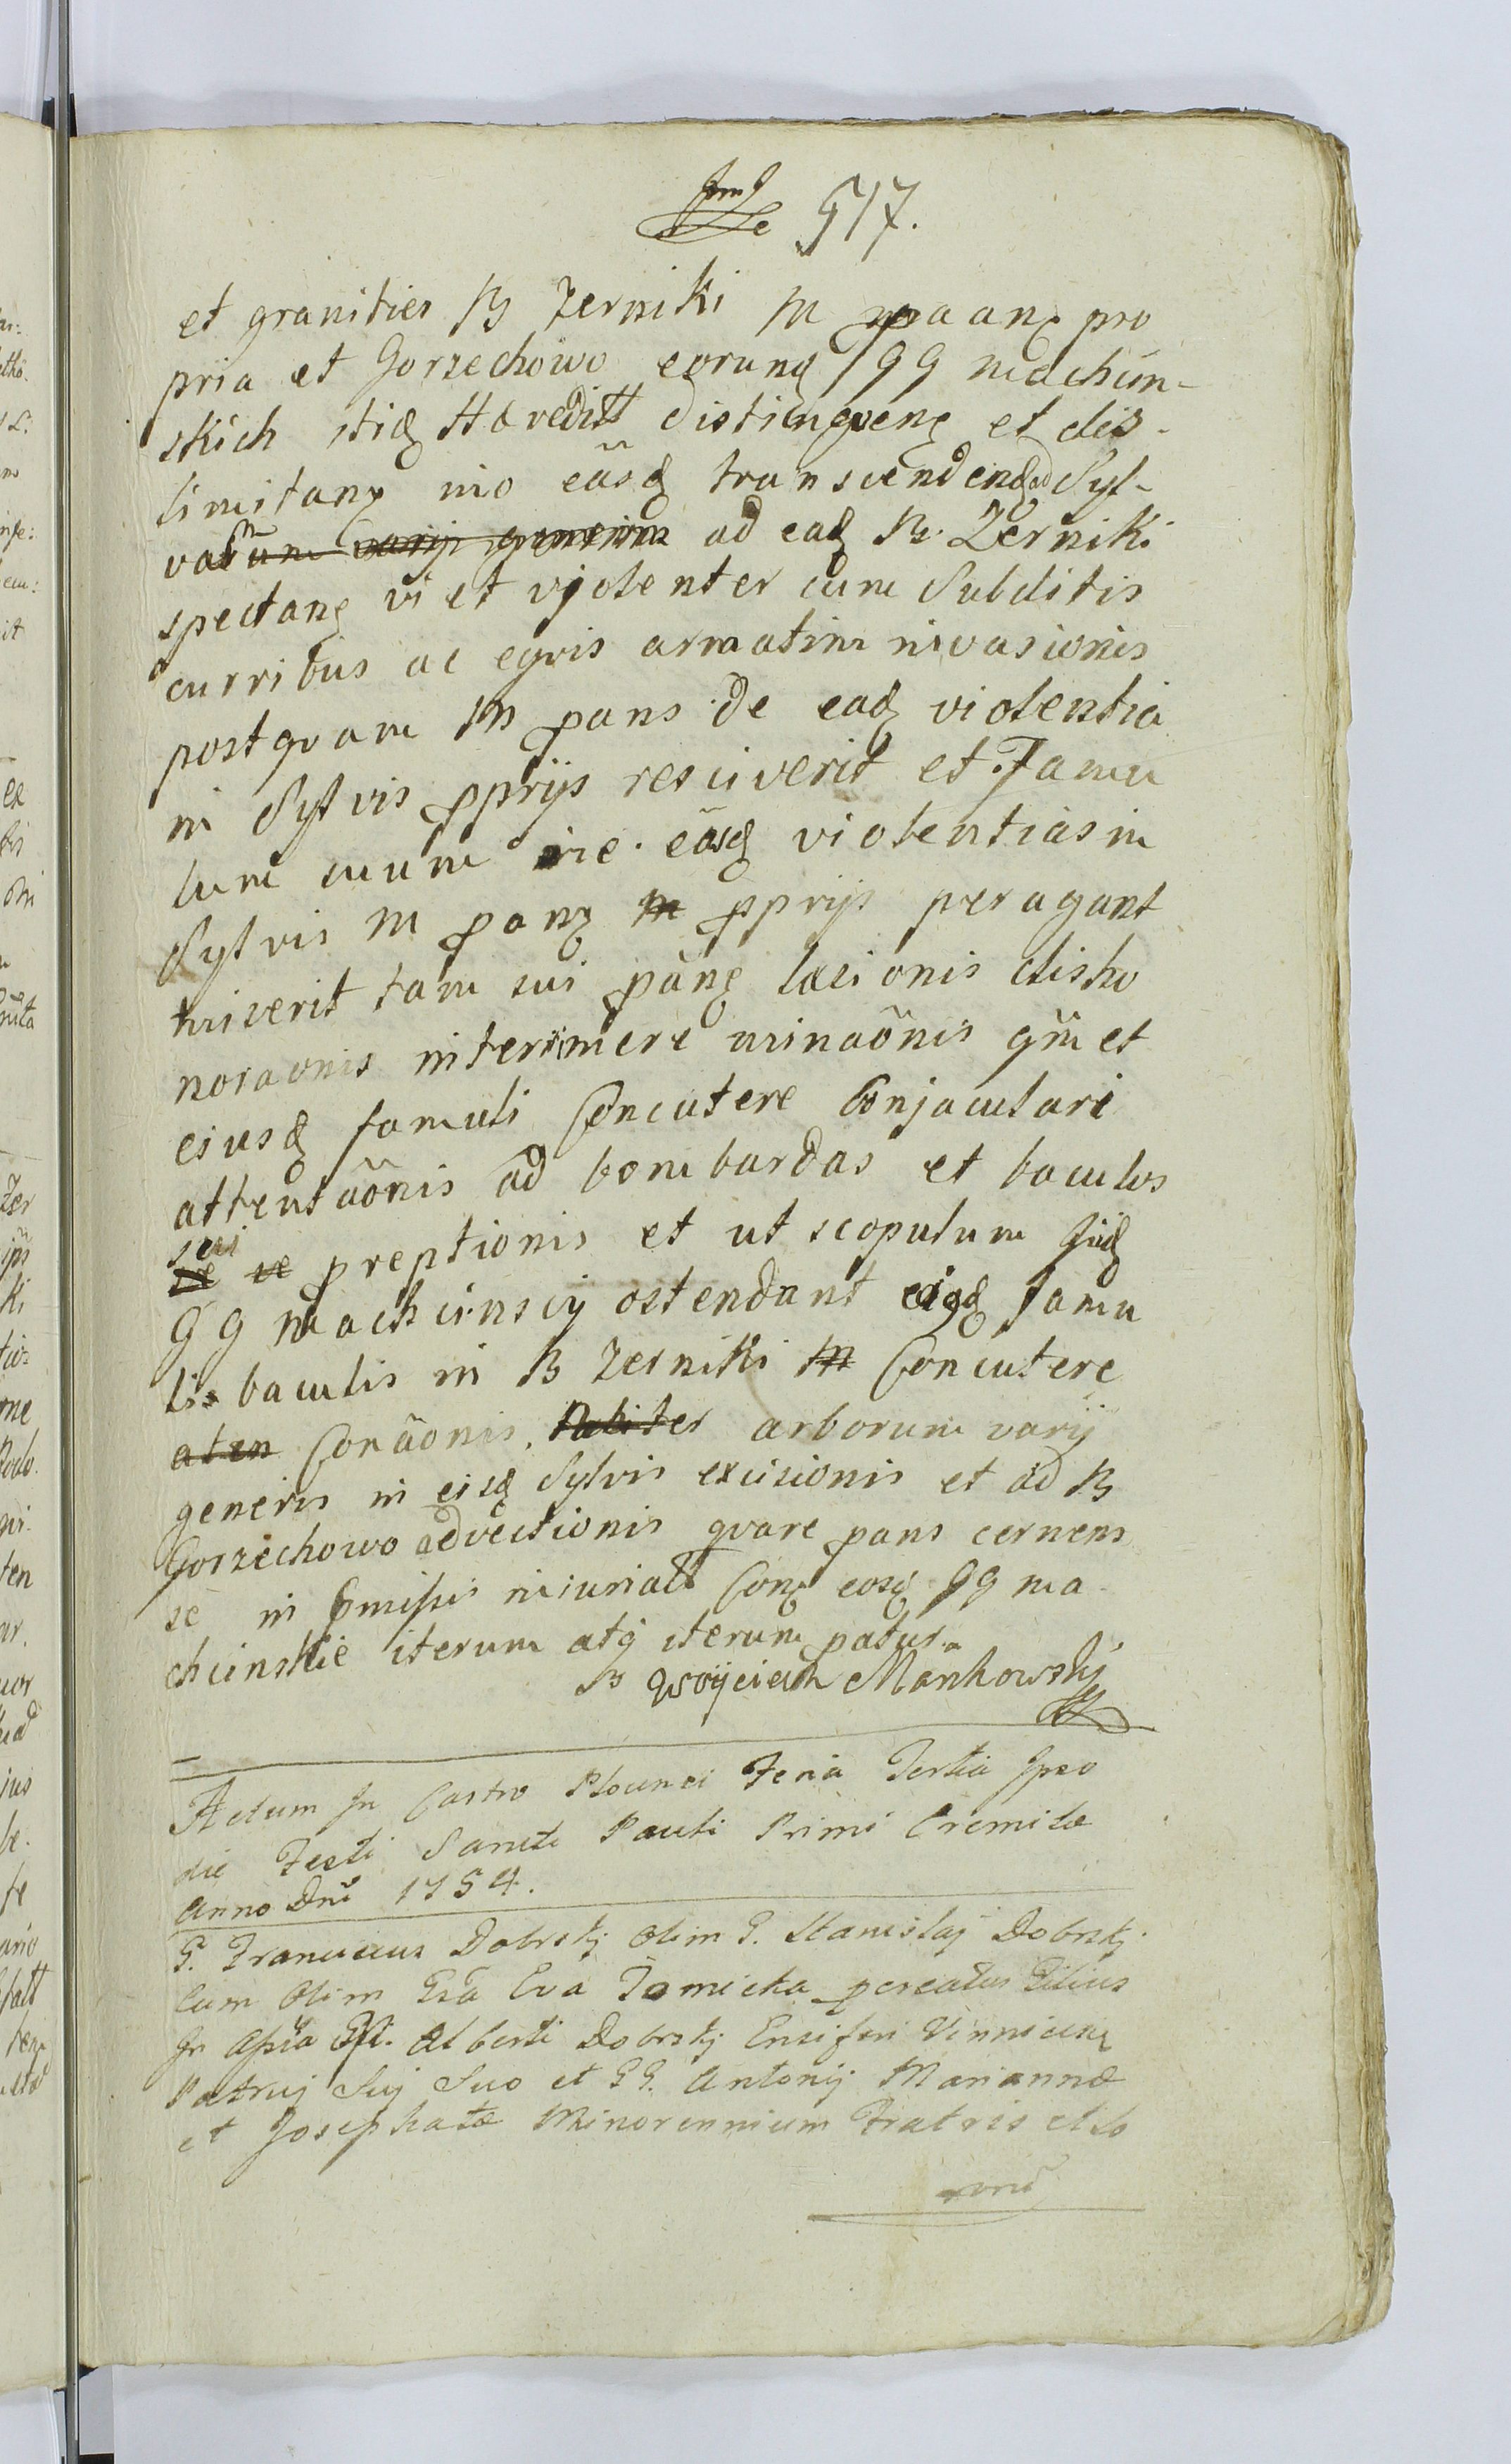 517.
et granities B Zerniki M paang pro
pria et Gorzechowo eorundę GG machcin-
skich itidę Hæreditt distingveng et dis-
limitang imo eãsdę transcendendę ad Syl-
vas ad eadę B. Zerniki
spectang vi et violenter cum Subditis
curribus ac eqvis armatim invasionis
postqvam M pans de eadę violentia
in Sylvis pprijs resciverit et Famu
lum suum ne eãsdę violentias in
Sylvis M pang pprijs peragant
miserit tam sui pãng læsionis disho
noraonis interimere minaõnis qm et
ejusdę famuli Concutere Conjaculari
attentaõnis ad bombardas et baculos
sui preptionis et ut scopulum iidę
GG machcinscy ostendant eigdę famu
li baculis in B Zerniki Concutere
Conaõnis, arborum varij
generis in eisdę Sylvis excisionis et ad B
Gorzechowo advectionis qvare pans cernens
se in pmissis injuriatt Cong eosdę GG ma-
chcinskie iterum atq iterum patur.
B Woyciech Mankowskj
Actum In Castro Plocensi Feria Tertia Ipso
die Festi Sancti Pauli Primi Eremitæ
Anno Dni 1754.
G. Franciscus Dobrskj Olim G. Stanislaj Dobrskj
Cum Olim Gsa Eva Tomicka pcreatus Filius
In Assia Gsi. Alberti Dobrskj Ensiferi Vinnicens
Patruj Suj Suo et GG. Antonij Mariannæ
et Josephatæ Minorennium Fratris et So
rorũ